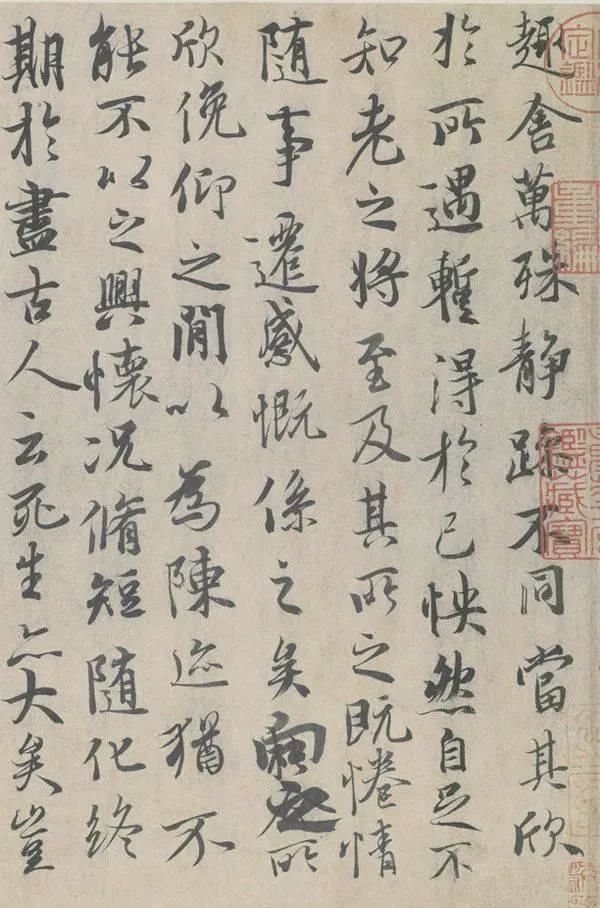 趣舍萬殊静躁不同當其欣
於所遇暫得於己怏然自足不
知老之將至及其所之既惓情
随事遷感慨係之矣向之所
欣俛仰之閒以為陳迹猶不
能不以之興懷况脩短随化終
期於盡古人云死生亦大矣豈